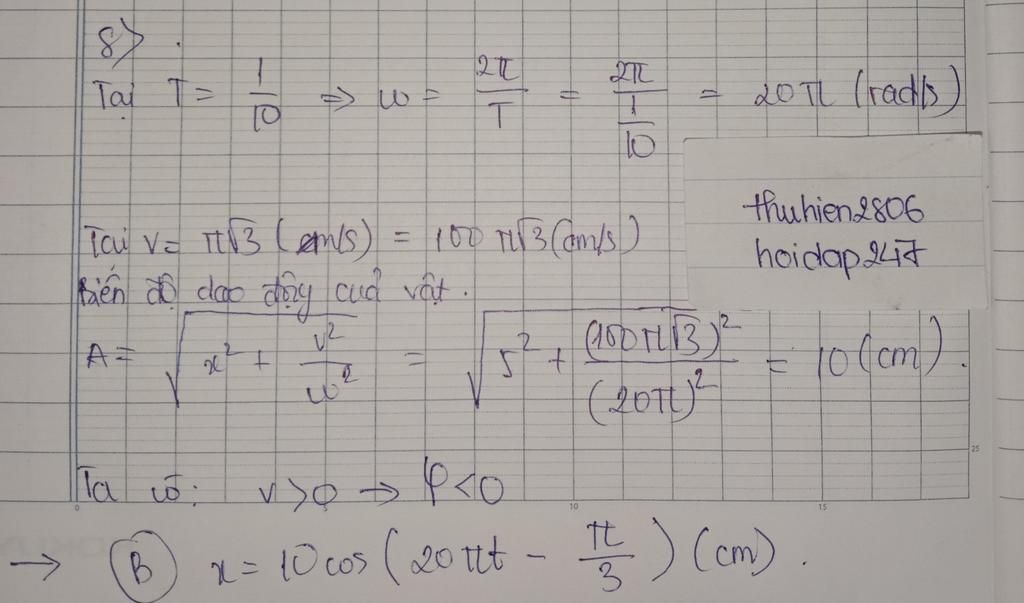 8).
Tại T = 1/10 => ω = 2π/T = 2π/(1/10) = 20π (rad/s)
thuhien2806
hoidap247
Tại v = π√3 (m/s) = 100π√3 (cm/s)
Biên độ dao động của vật.
A = √(x² + v²/ω²) = √(5² + (100π√3)²/(20π)²) = 10 (cm).
Ta có: v > 0 → φ < 0
→ (B) x = 10cos(20πt - π/3) (cm).
25
0 5 10 15